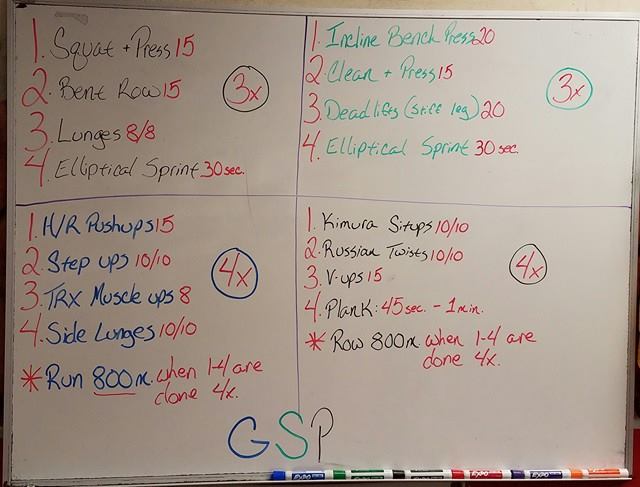 1. Squat + Press 15
2. Bent Row 15
3. Lunges 8/8
4. Elliptical Sprint 30 sec.
3x
1. Incline Bench Press 20
2. Clean + Press 15
3. Deadlifts (stiff leg) 20
4. Elliptical Sprint 30 sec.
3x
1. H/R Pushups 15
2. Step ups 10/10
3. TRX Muscle ups 8
4. Side Lunges 10/10
* Run 800m. when 1-4 are
done 4x.
4x
1. Kimura Situps 10/10
2. Russian Twists 10/10
3. V-ups 15
4. Plank: 45 sec. - 1 min.
* Row 800m when 1-4 are
done 4x.
4x
GSP
EXPO
EXPO